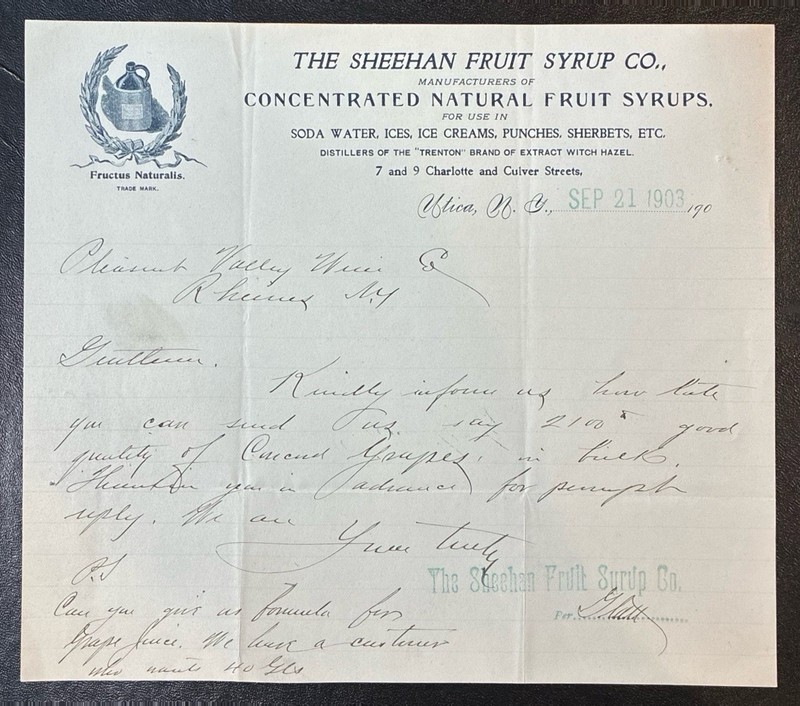 THE SHEEHAN FRUIT SYRUP CO.,
MANUFACTURERS OF
CONCENTRATED NATURAL FRUIT SYRUPS.
FOR USE IN
SODA WATER, ICES, ICE CREAMS, PUNCHES, SHERBETS, ETC.
DISTILLERS OF THE "TRENTON" BRAND OF EXTRACT WITCH HAZEL.
7 and 9 Charlotte and Culver Streets,
Fructus Naturalis.
TRADE MARK.
Utica, N. Y., SEP 21 1903 190
Pleasant Valley Wine Co
Rheims NY
Gentlemen.
Kindly inform us how late
you can send us say 2100 good
quality of Concord Grapes, in bulk.
Thanking you in advance for prompt
reply. We are
Yours truly
The Sheehan Fruit Syrup Co.
Per
P.S
Can you give us formula for
Grape Juice. We have a customer
who wants 40 Gls